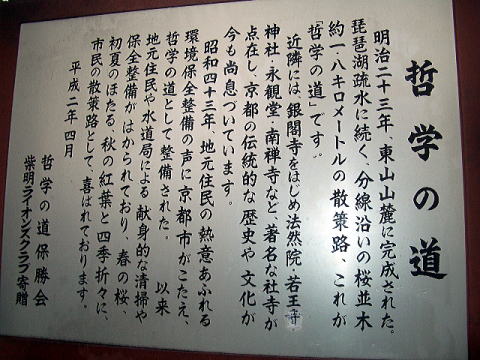 哲学の道
明治二十三年、東山山麓に完成された。
琵琶湖疏水に続く、分線沿いの桜並木
約一・八キロメートルの散策路、これが
「哲学の道」です。
近隣には、銀閣寺をはじめ法然院・若王寺
神社・永観堂・南禅寺など、著名な社寺が
点在し、京都の伝統的な歴史や文化が
今も尚息づいています。
昭和四十三年、地元住民の熱意あふれる
環境保全整備の声に京都市がこたえ、
哲学の道として整備された。　以来
地元住民や水道局による献身的な清掃や
保全整備がはかられており、春の桜、
初夏のほたる、秋の紅葉と四季折々に、
市民の散策路として、喜ばれております。
平成二年四月
哲学の道保勝会
紫明ライオンズクラブ寄贈